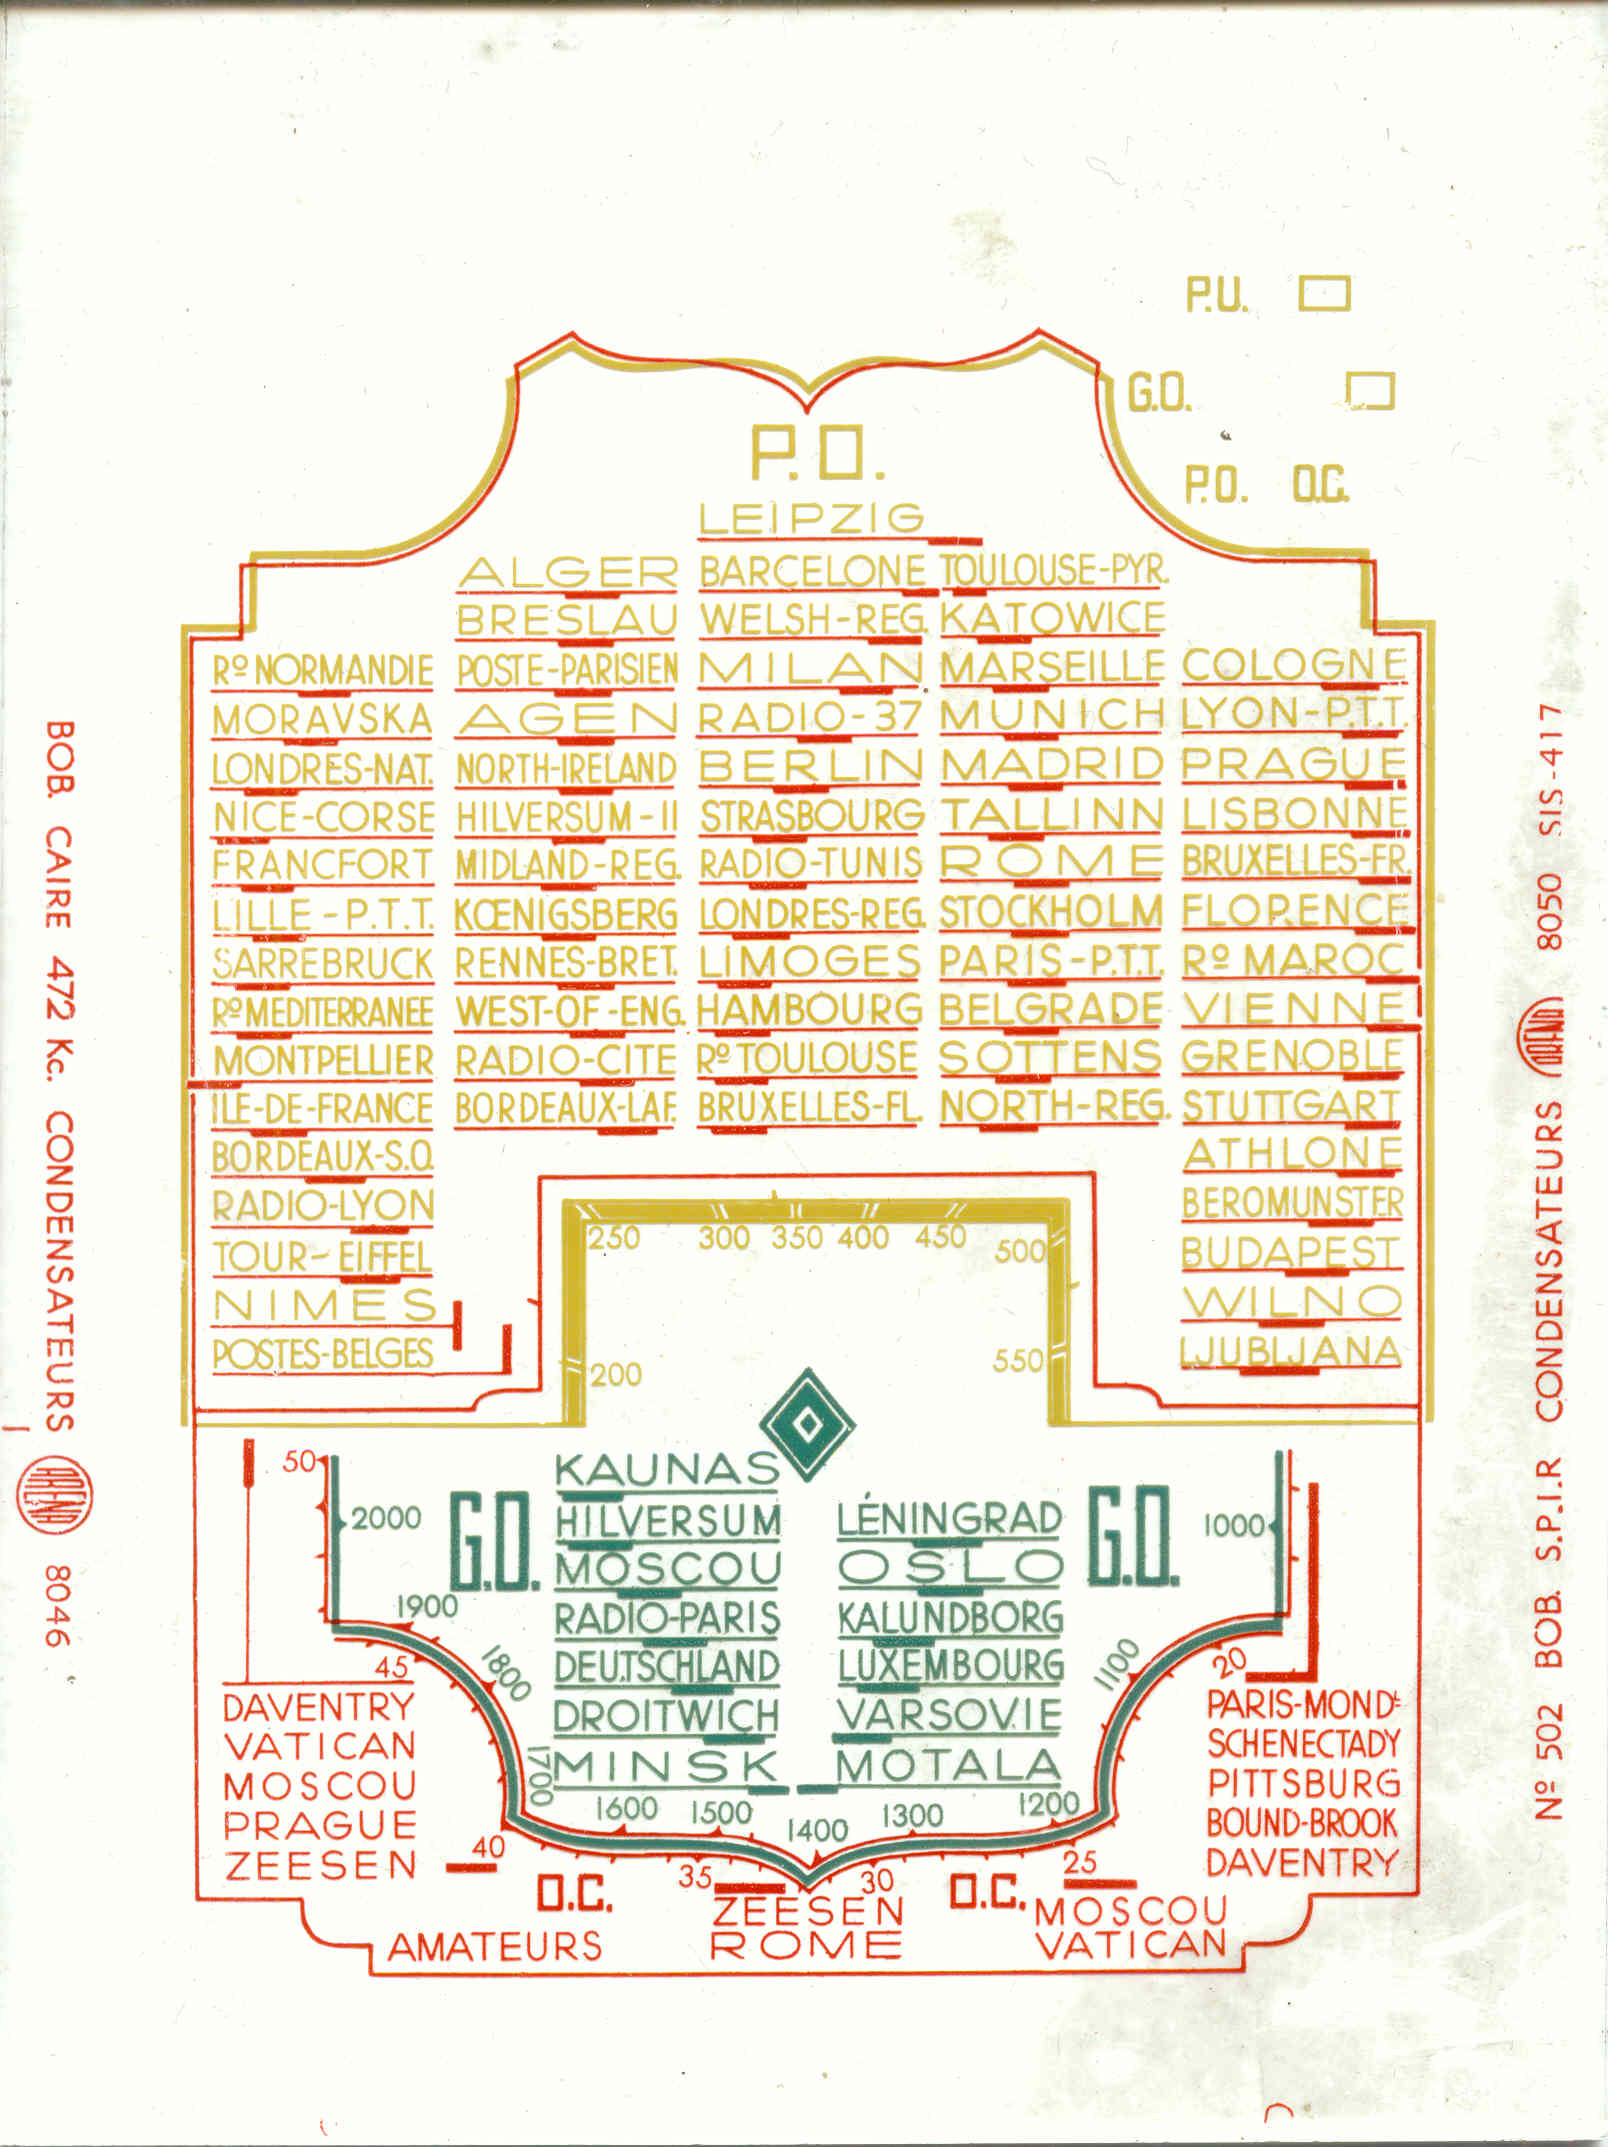 P.U.
G.O.
P.O. O.C.
P.O.
LEIPZIG
ALGER BARCELONE TOULOUSE-PYR.
BRESLAU WELSH-REG. KATOWICE
Rº NORMANDIE POSTE-PARISIEN MILAN MARSEILLE COLOGNE
MORAVSKA AGEN RADIO-37 MUNICH LYON-P.T.T.
LONDRES-NAT. NORTH-IRELAND BERLIN MADRID PRAGUE
NICE-CORSE HILVERSUM-II STRASBOURG TALLINN LISBONNE
FRANCFORT MIDLAND-REG. RADIO-TUNIS ROME BRUXELLES-FR.
LILLE-P.T.T. KŒNIGSBERG LONDRES-REG. STOCKHOLM FLORENCE
SARREBRUCK RENNES-BRET. LIMOGES PARIS-P.T.T. Rº MAROC
Rº MEDITERRANEE WEST-OF-ENG. HAMBOURG BELGRADE VIENNE
MONTPELLIER RADIO-CITE Rº TOULOUSE SOTTENS GRENOBLE
ILE-DE-FRANCE BORDEAUX-LAF. BRUXELLES-FL. NORTH-REG. STUTTGART
BORDEAUX-S.O. ATHLONE
RADIO-LYON BEROMUNSTER
TOUR-EIFFEL BUDAPEST
NIMES WILNO
POSTES-BELGES LJUBLJANA
250 300 350 400 450 500
200 550
KAUNAS
HILVERSUM LÉNINGRAD
MOSCOU OSLO
RADIO-PARIS KALUNDBORG
DEUTSCHLAND LUXEMBOURG
DROITWICH VARSOVIE
MINSK MOTALA
G.O. G.O.
2000 1900 1800 1700 1600 1500 1400 1300 1200 1100 1000
50 45 40 35 30 25 20
DAVENTRY
VATICAN
MOSCOU
PRAGUE
ZEESEN
O.C. O.C.
AMATEURS
ZEESEN
ROME
MOSCOU
VATICAN
PARIS-MONDᵗ
SCHENECTADY
PITTSBURG
BOUND-BROOK
DAVENTRY
BOB. CAIRE 472 Kc. CONDENSATEURS ARENA 8046
Nº 502 BOB. S.P.I.R CONDENSATEURS ARENA 8050 SIS-417